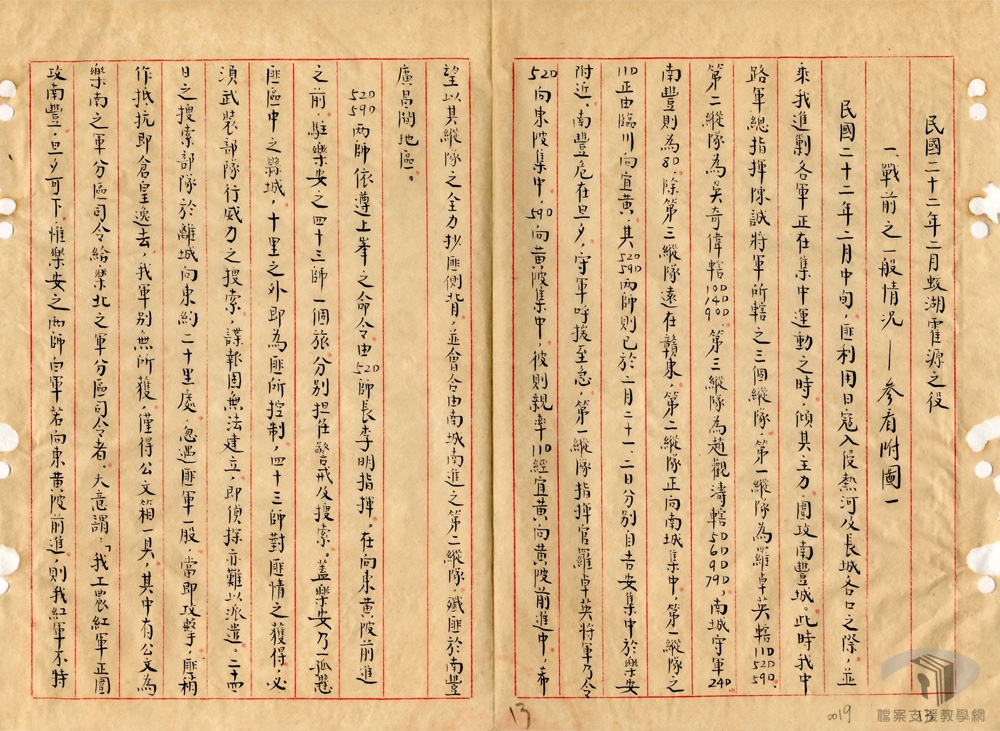 民國二十二年二月蛟湖霍源之役
一、戰前之一般情況——參看附圖一
民國二十二年二月中旬，匪利用日寇入侵熱河及長城各口之際，並
乘我進剿各軍正在集中運動之時，傾其主力，圍攻南豐城。此時我中
路軍總指揮陳誠將軍所轄之三個縱隊，第一縱隊為羅卓英轄11D 52D 59D.
第二縱隊為吳奇偉轄10D 14D 90D.第三縱隊為趙觀濤轄5D 6D 9D 79D，南城守軍24D
南豐則為8D.除第三縱隊遠在贛東，第二縱隊正向南城集中，第一縱隊之
11D正由臨川向宜黃，其52D 59D兩師則已於二月二十一、二日分別自吉安集中於樂安
附近，南豐危在旦夕，守軍呼援至急，第一縱隊指揮官羅卓英將軍乃令
52D向東陂集中，59D向黃陂集中，彼則親率11D經宜黃向黃陂前進中，希
望以其縱隊之全力抄匪側背，並會合由南城南進之第二縱隊，殲匪於南豐
廣昌間地區。
52D 59D兩師依遵上峯之命令由52D師長李明指揮。在向東黃陂前進
之前，駐樂安之四十三師一個旅分別担任警戒及搜索。蓋樂安乃一孤懸
匪區中之縣城，十里之外即為匪所控制，四十三師對匪情之獲得，必
須武裝部隊行威力之搜索，諜報固無法建立，即偵探亦難以派遣。二十四
日之搜索部隊於離城向東約二十里處，忽遇匪軍一股，當即攻擊，匪稍
作抵抗即倉皇逸去，我軍別無所獲，僅得公文箱一具，其中有公文為
樂南之軍分區司令給樂北之軍分區司令者，大意謂：「我工農紅軍正圍
攻南豐，旦夕可下，惟樂安之兩師白軍若向東黃陂前進，則我紅軍不特
13
0019
13
檔案支援教學網